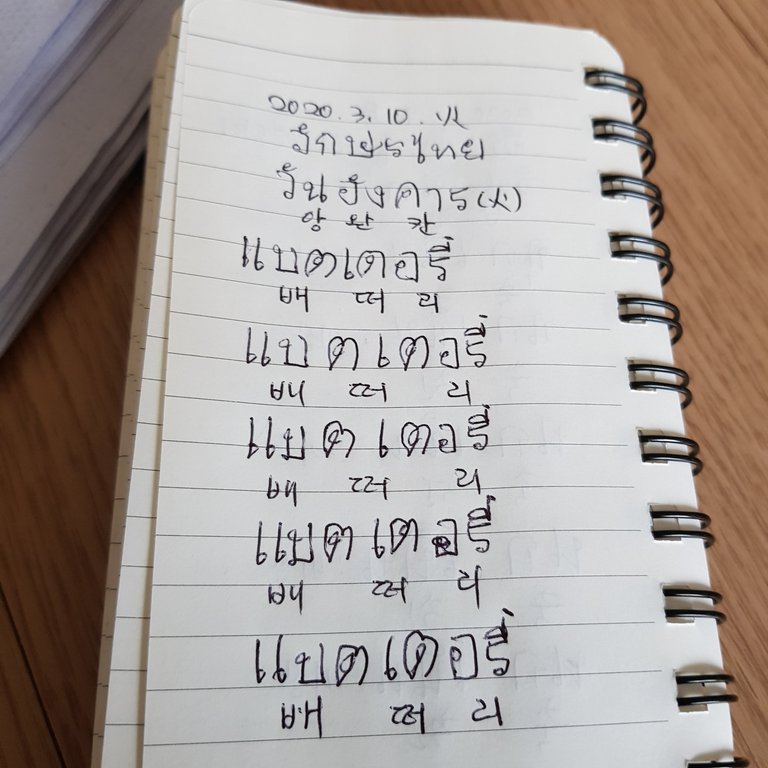 2020. 3. 10. 火
อักษรไทย
วันอังคาร(火)
앙 완 칸
แบตเตอรี่
배 떠 리
แบตเตอรี่
배 떠 리
แบตเตอรี่
배 떠 리
แบตเตอรี่
배 떠 리
แบตเตอรี่
배 떠 리